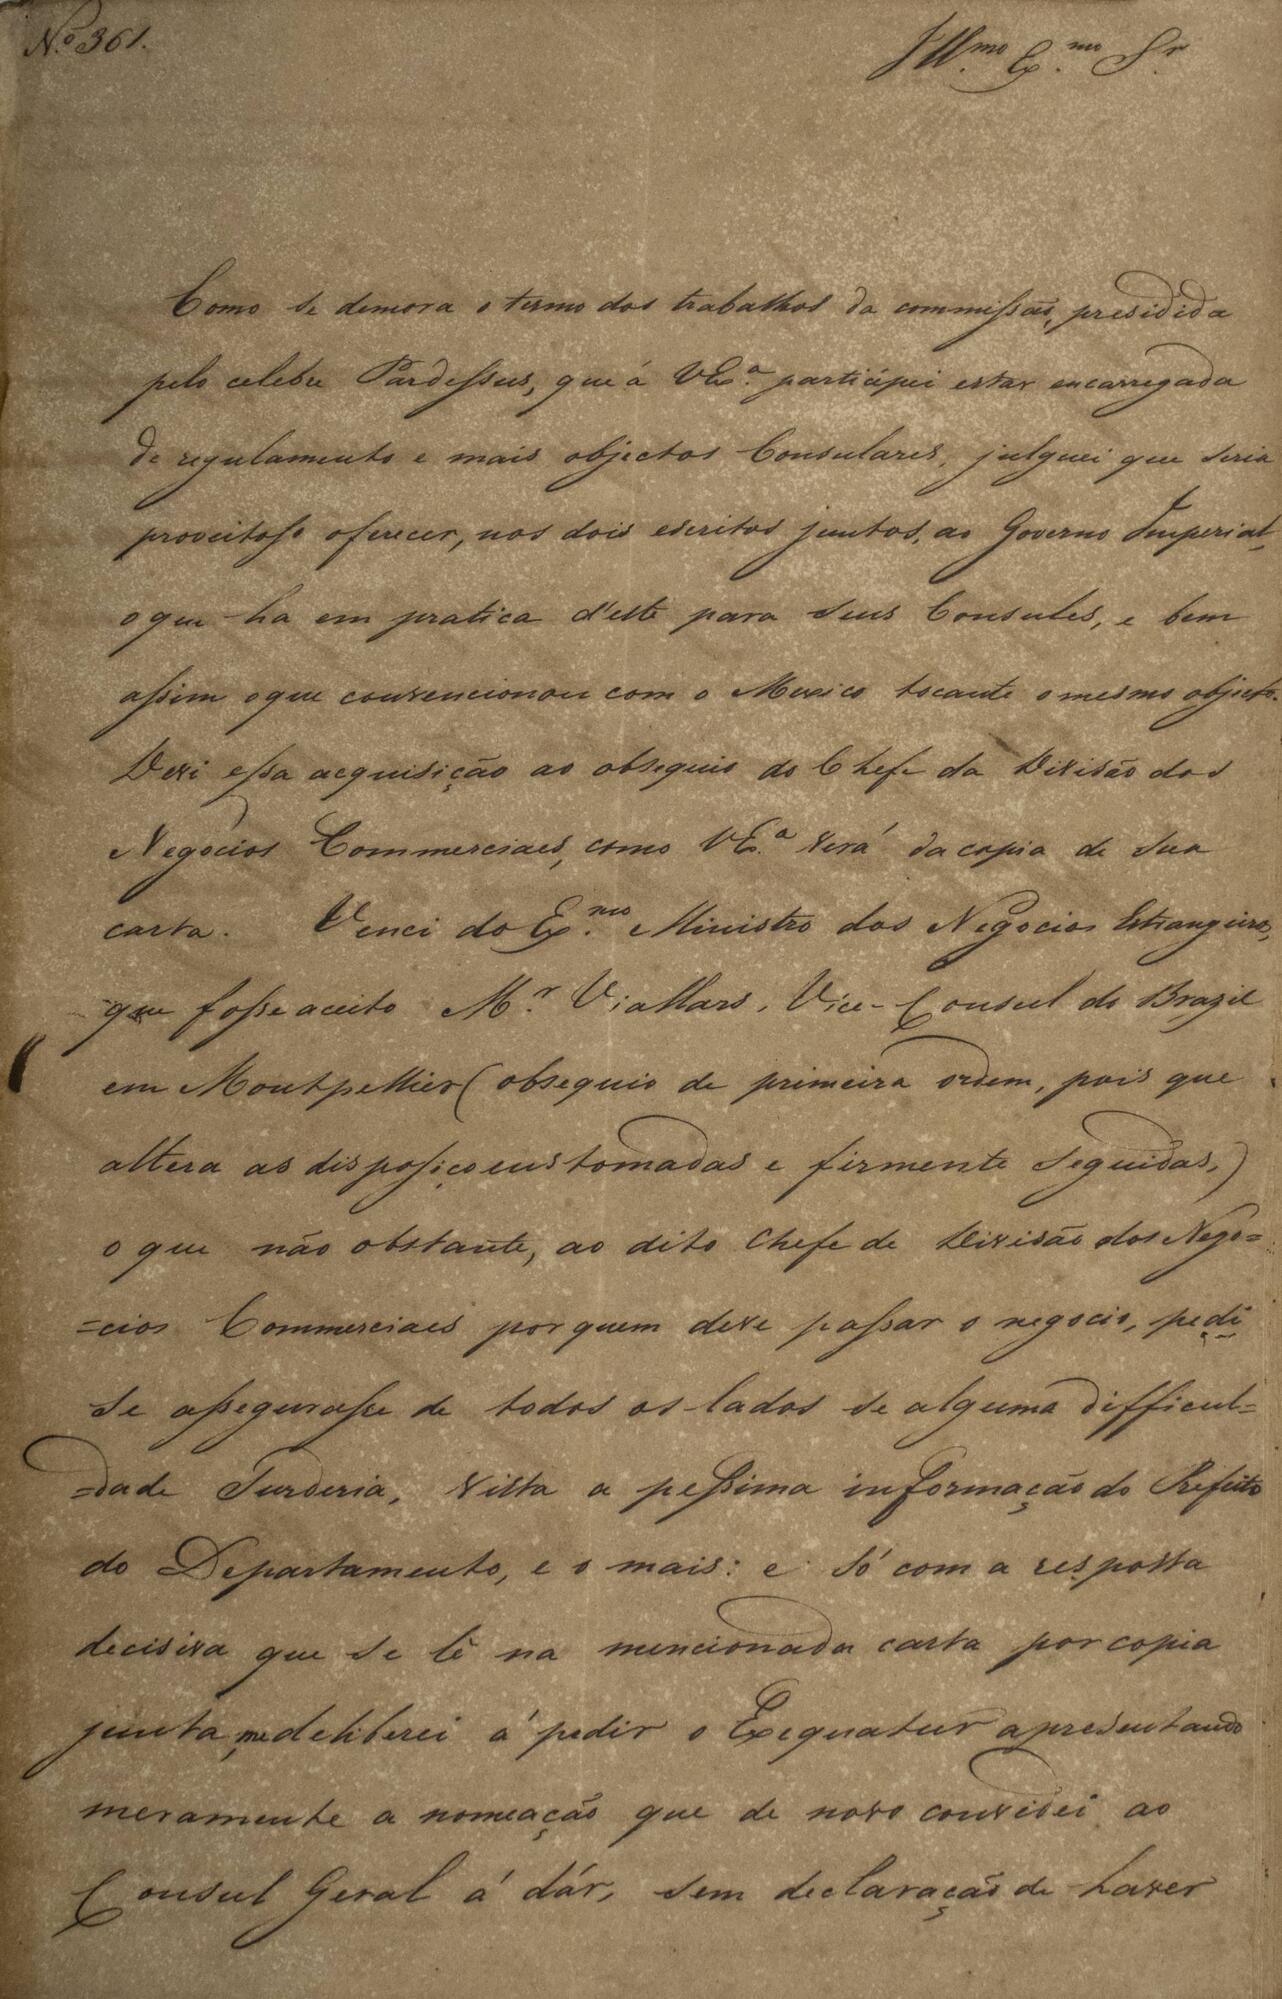 N.º 361.
Ill.mo Ex.mo Sr
Como se demora o termo dos trabalhos da commissão, presidida
pelo celebre Pardessus, que á VEx.ª participei estar encarregada
de regulamento e mais objectos Consulares, julguei que seria
proveitoso oferecer, nos dois escritos juntos, ao Governo Imperial,
o que ha em pratica d'este para seus Consules, e bem
assim o que convencionou com o Mexico tocante o mesmo objecto.
Devi essa acquisição ao obsequio do Chefe da Divisão dos
Negocios Commerciaes, como VEx.ª verá da copia de sua
carta. Venci do Ex.mo Ministro dos Negocios Estrangeiros,
que fosse aceito M.r Viallars, Vice-Consul do Brazil
em Montpellier (obsequio de primeira ordem, pois que
altera as disposiçoens tomadas e firmente seguidas,)
o que não obstante, ao dito Chefe de Divisão dos Nego=
=cios Commerciaes por quem deve passar o negocio, pedi
se assegurasse de todos os lados se alguma difficul=
=dade surderia, vista a pessima informação do Prefeito
do Departamento, e o mais: e só com a resposta
decisiva que se lê na mencionada carta por copia
junta, me deliberei á pedir o Exequatur apresentando
meramente a nomeação que de novo convidei ao
Consul Geral á dár, sem declaração de haver